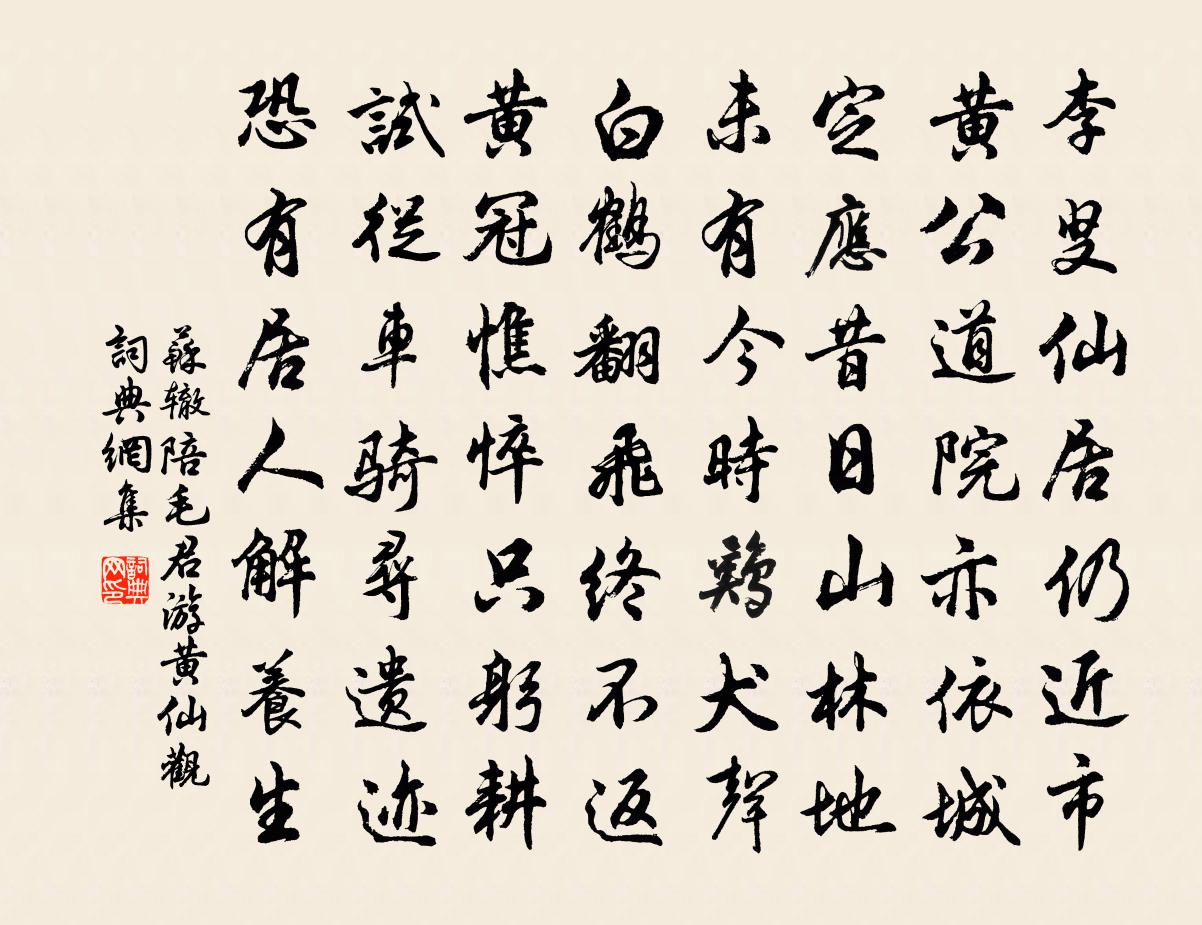 李叟仙居仍近市
黄公道院亦依城
定應昔日山林地
未有今時鷄犬聲
白鶴翻飛終不返
黄冠憔悴只躬耕
試從車騎尋遗迹
恐有居人解養生
蘇辙陪毛君游黄仙觀
詞典網集
詞典网印